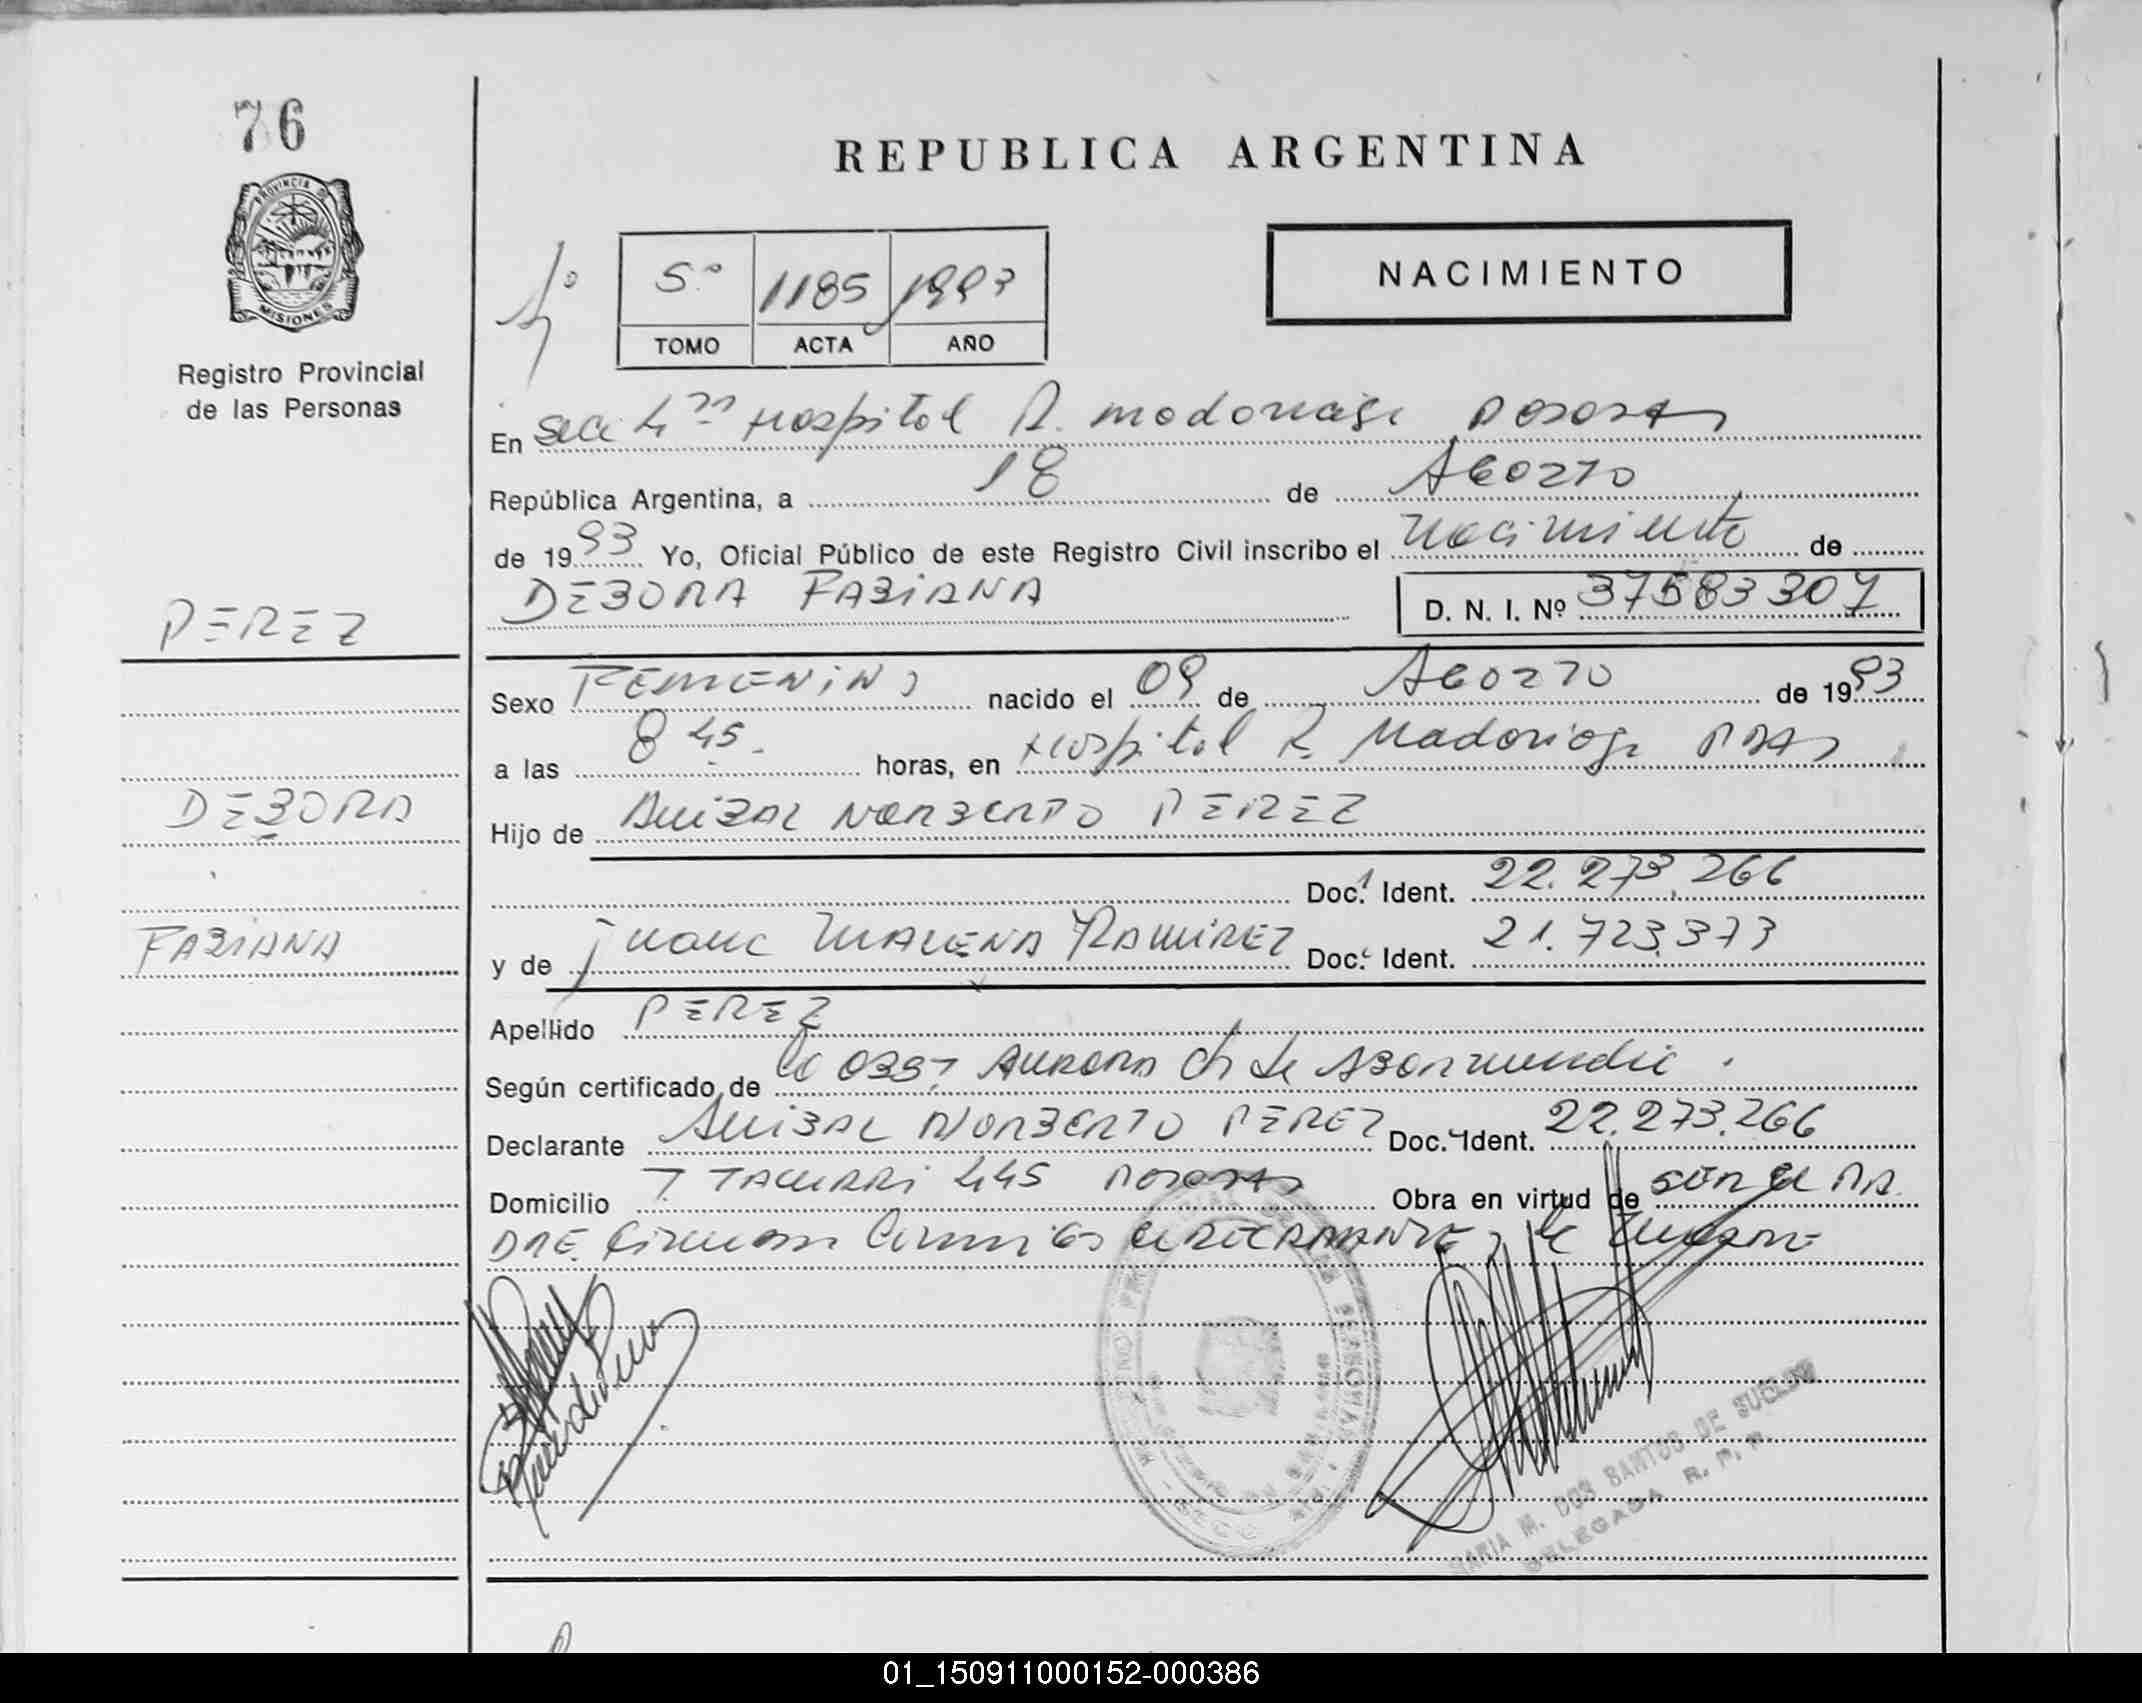 76
PROVINCIA DE
MISIONES
Registro Provincial
de las Personas
PEREZ
DEBORA
FABIANA
REPUBLICA ARGENTINA
5º 1185 1993
TOMO ACTA AÑO
NACIMIENTO
En Secc 4ta Hospital R. Madariaga Posadas
República Argentina, a 18 de Agosto
de 1993 Yo, Oficial Público de este Registro Civil inscribo el Nacimiento de
DEBORA FABIANA D. N. I. Nº 37583307
Sexo FEMENINO nacido el 09 de Agosto de 1993
a las 8 45. horas, en Hospital R. Madariaga Pdas
Hijo de Anibal Norberto PEREZ
Doc. Ident. 22.273.266
y de Juana Malena Ramirez Doc. Ident. 21.723.373
Apellido PEREZ
Según certificado de Aurora Ch de
Declarante Anibal Norberto PEREZ Doc. Ident. 22.273.266
Domicilio 445 Posadas Obra en virtud de ser el PA
DRE.
MARIA M. DOS SANTOS DE SUELDO
DELEGADA R. P. P.
01_150911000152-000386